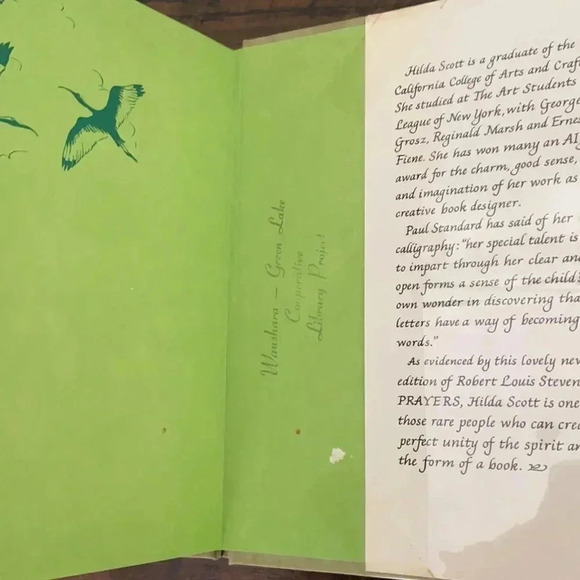 Waushara — Green Lake
Cooperative
Library Project
Hilda Scott is a graduate of the
California College of Arts and Craf
She studied at The Art Students
League of New York, with George
Grosz, Reginald Marsh and Ernes
Fiene. She has won many an AI
award for the charm, good sense,
and imagination of her work as
creative book designer.
Paul Standard has said of her
calligraphy: "her special talent is
to impart through her clear and
open forms a sense of the child's
own wonder in discovering tha
letters have a way of becoming
words."
As evidenced by this lovely new
edition of Robert Louis Steven
PRAYERS, Hilda Scott is one
those rare people who can crea
perfect unity of the spirit an
the form of a book.